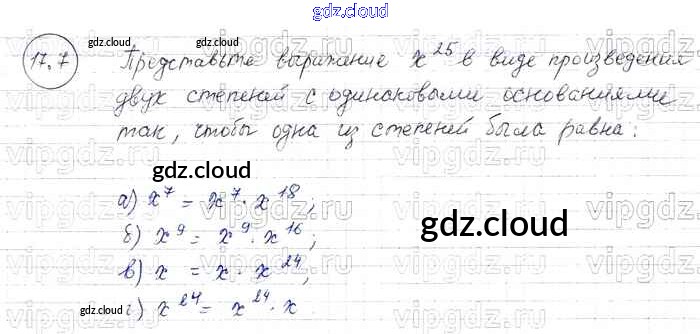 gdz.cloud
17.7 gdz.cloud Представьте выражение x^25 в виде произведения
двух степеней с одинаковыми основаниями
так, чтобы одна из степеней была равна:
gdz.cloud
а) x^7 = x^7 · x^18;
б) x^9 = x^9 · x^16;
gdz.cloud
в) x = x · x^24;
gdz.cloud г) x^24 = x^24 · x